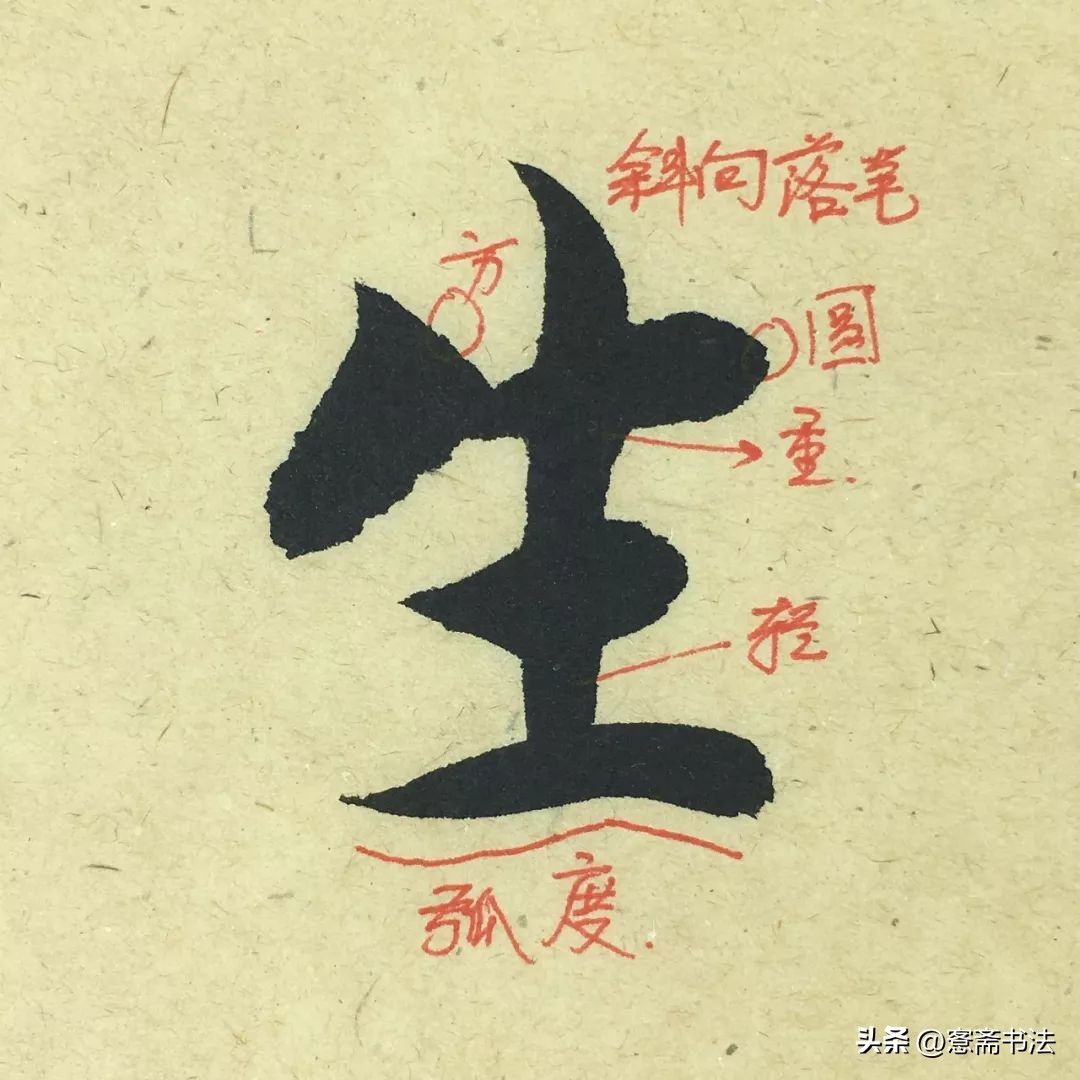 斜向落笔
方
圆
生
重.
轻
弧度.
头条 @窓斋书法